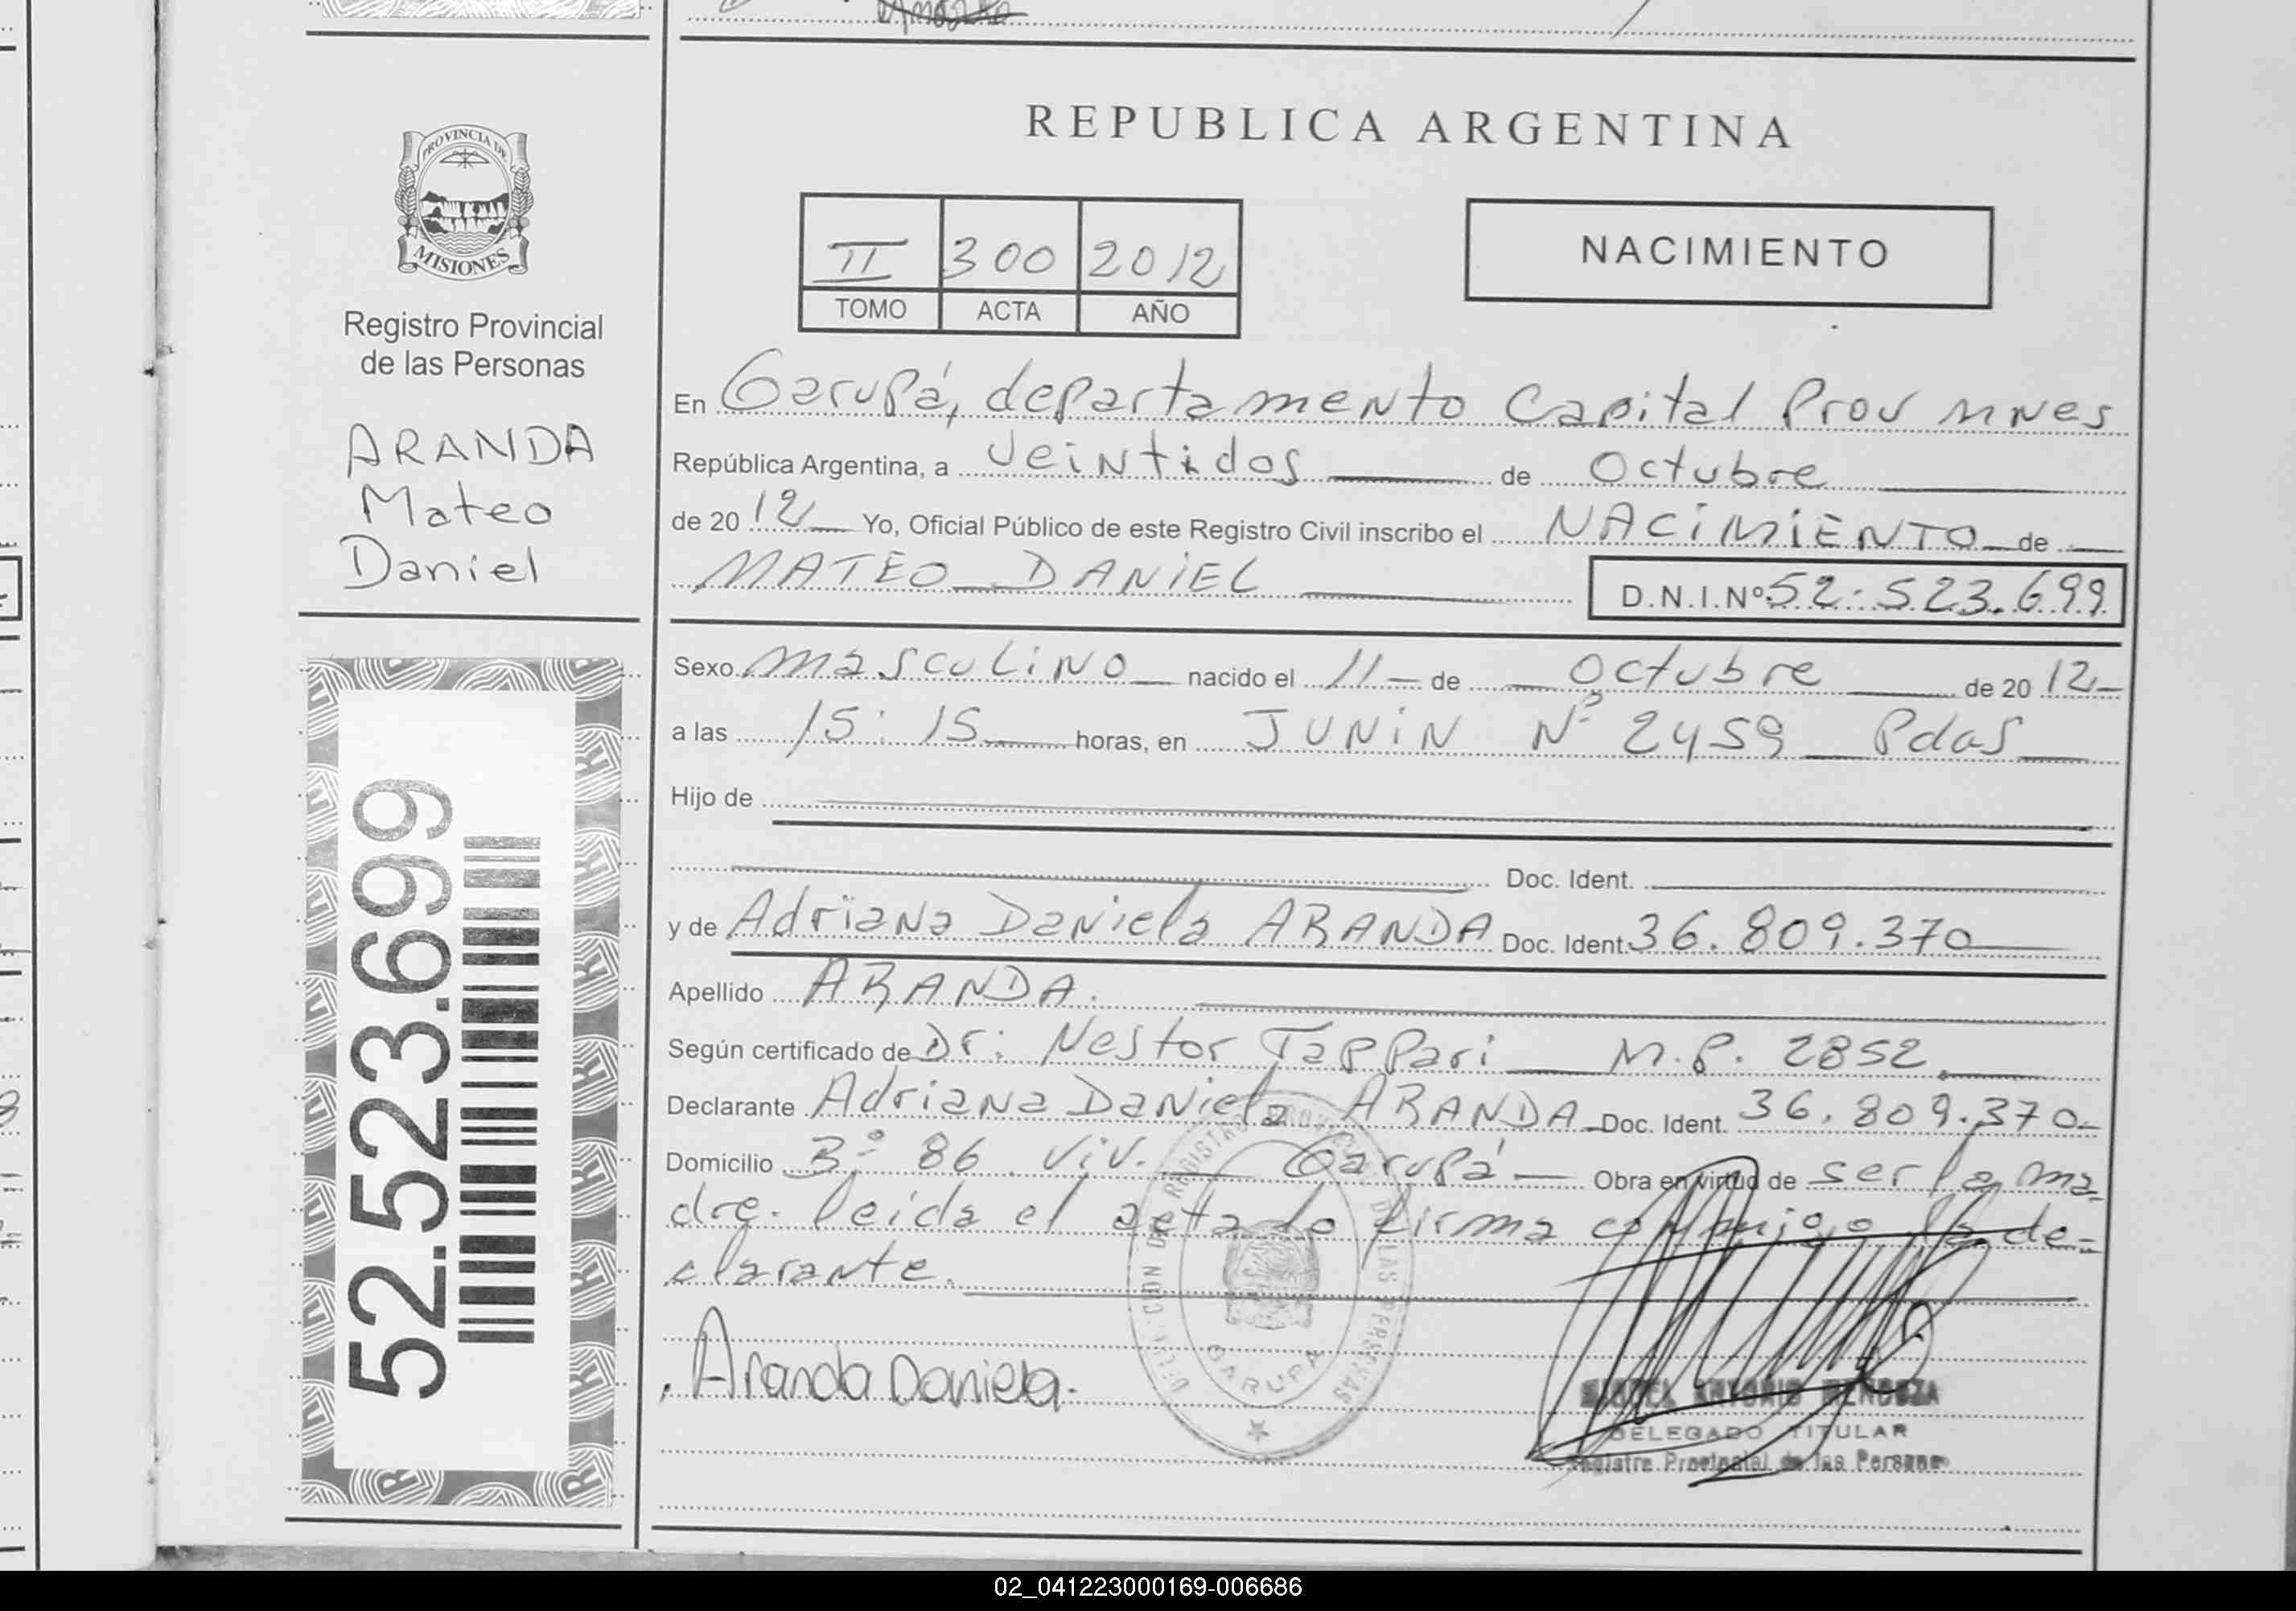 PROVINCIA DE
MISIONES
Registro Provincial
de las Personas
ARANDA
Mateo
Daniel
52.523.699
REPUBLICA ARGENTINA
II 300 2012
TOMO ACTA AÑO
NACIMIENTO
En Garupá, departamento Capital Prov MNes
República Argentina, a veintidos de Octubre
de 20 12 Yo, Oficial Público de este Registro Civil inscribo el NACIMIENTO de
MATEO DANIEL D.N.I.Nº 52.523.699
Sexo masculino nacido el 11 de Octubre de 20 12
a las 15:15 horas, en JUNIN Nº 2459 Pdas
Hijo de
Doc. Ident.
y de Adriana Daniela ARANDA Doc. Ident. 36.809.370
Apellido ARANDA.
Según certificado de Dr: Nestor Tappari M.P. 2852
Declarante Adriana Daniela ARANDA Doc. Ident. 36.809.370
Domicilio Bº 86 Viv. Garupá Obra en virtud de ser la ma
dre. leida el acta lo firma conmigo la de-
clarante.
Aranda Daniela.
GARUPA
MIGUEL ANTONIO MENDOZA
DELEGADO TITULAR
Registro Provincial de las Personas
02_041223000169-006686